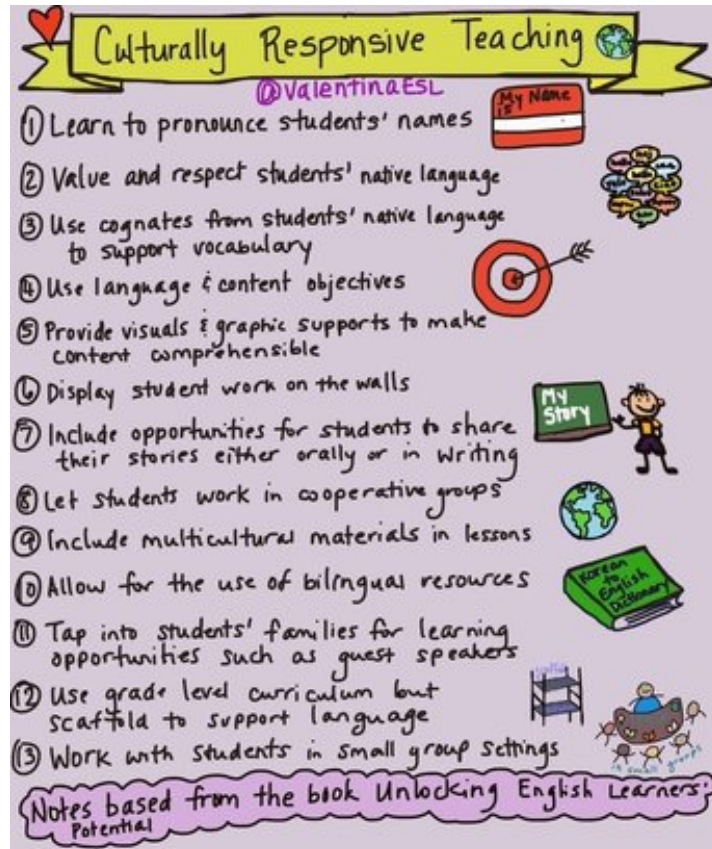 Culturally Responsive Teaching
@ValentinaESL
① Learn to pronounce students' names
My Name
is
② Value and respect students' native language
③ Use cognates from students' native language
to support vocabulary
④ Use language & content objectives
⑤ Provide visuals & graphic supports to make
content comprehensible
⑥ Display student work on the walls
⑦ Include opportunities for students to share
their stories either orally or in writing
My
Story
⑧ Let students work in cooperative groups
⑨ Include multicultural materials in lessons
⑩ Allow for the use of bilingual resources
Korean
to
English
Dictionary
⑪ Tap into students' families for learning
opportunities such as guest speakers
⑫ Use grade level curriculum but
scaffold to support language
⑬ Work with students in small group settings
in small groups
Notes based from the book Unlocking English Learners'
Potential